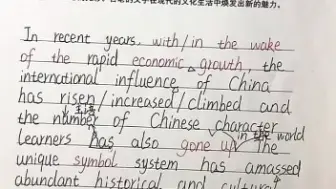 古老的文字在现代的文化生活中焕发出新的魅力。
In recent years, with/in the wake
of the rapid economic growth, the
international influence of China
has risen/increased/climbed and
the number of Chinese character
in the world
learners has also gone up. The
unique symbol system has amassed
abundant historical and cultural